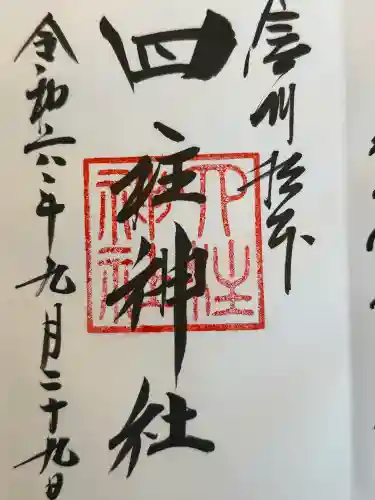 信州松本
四柱神社
四柱
神社
令和六年九月二十九日